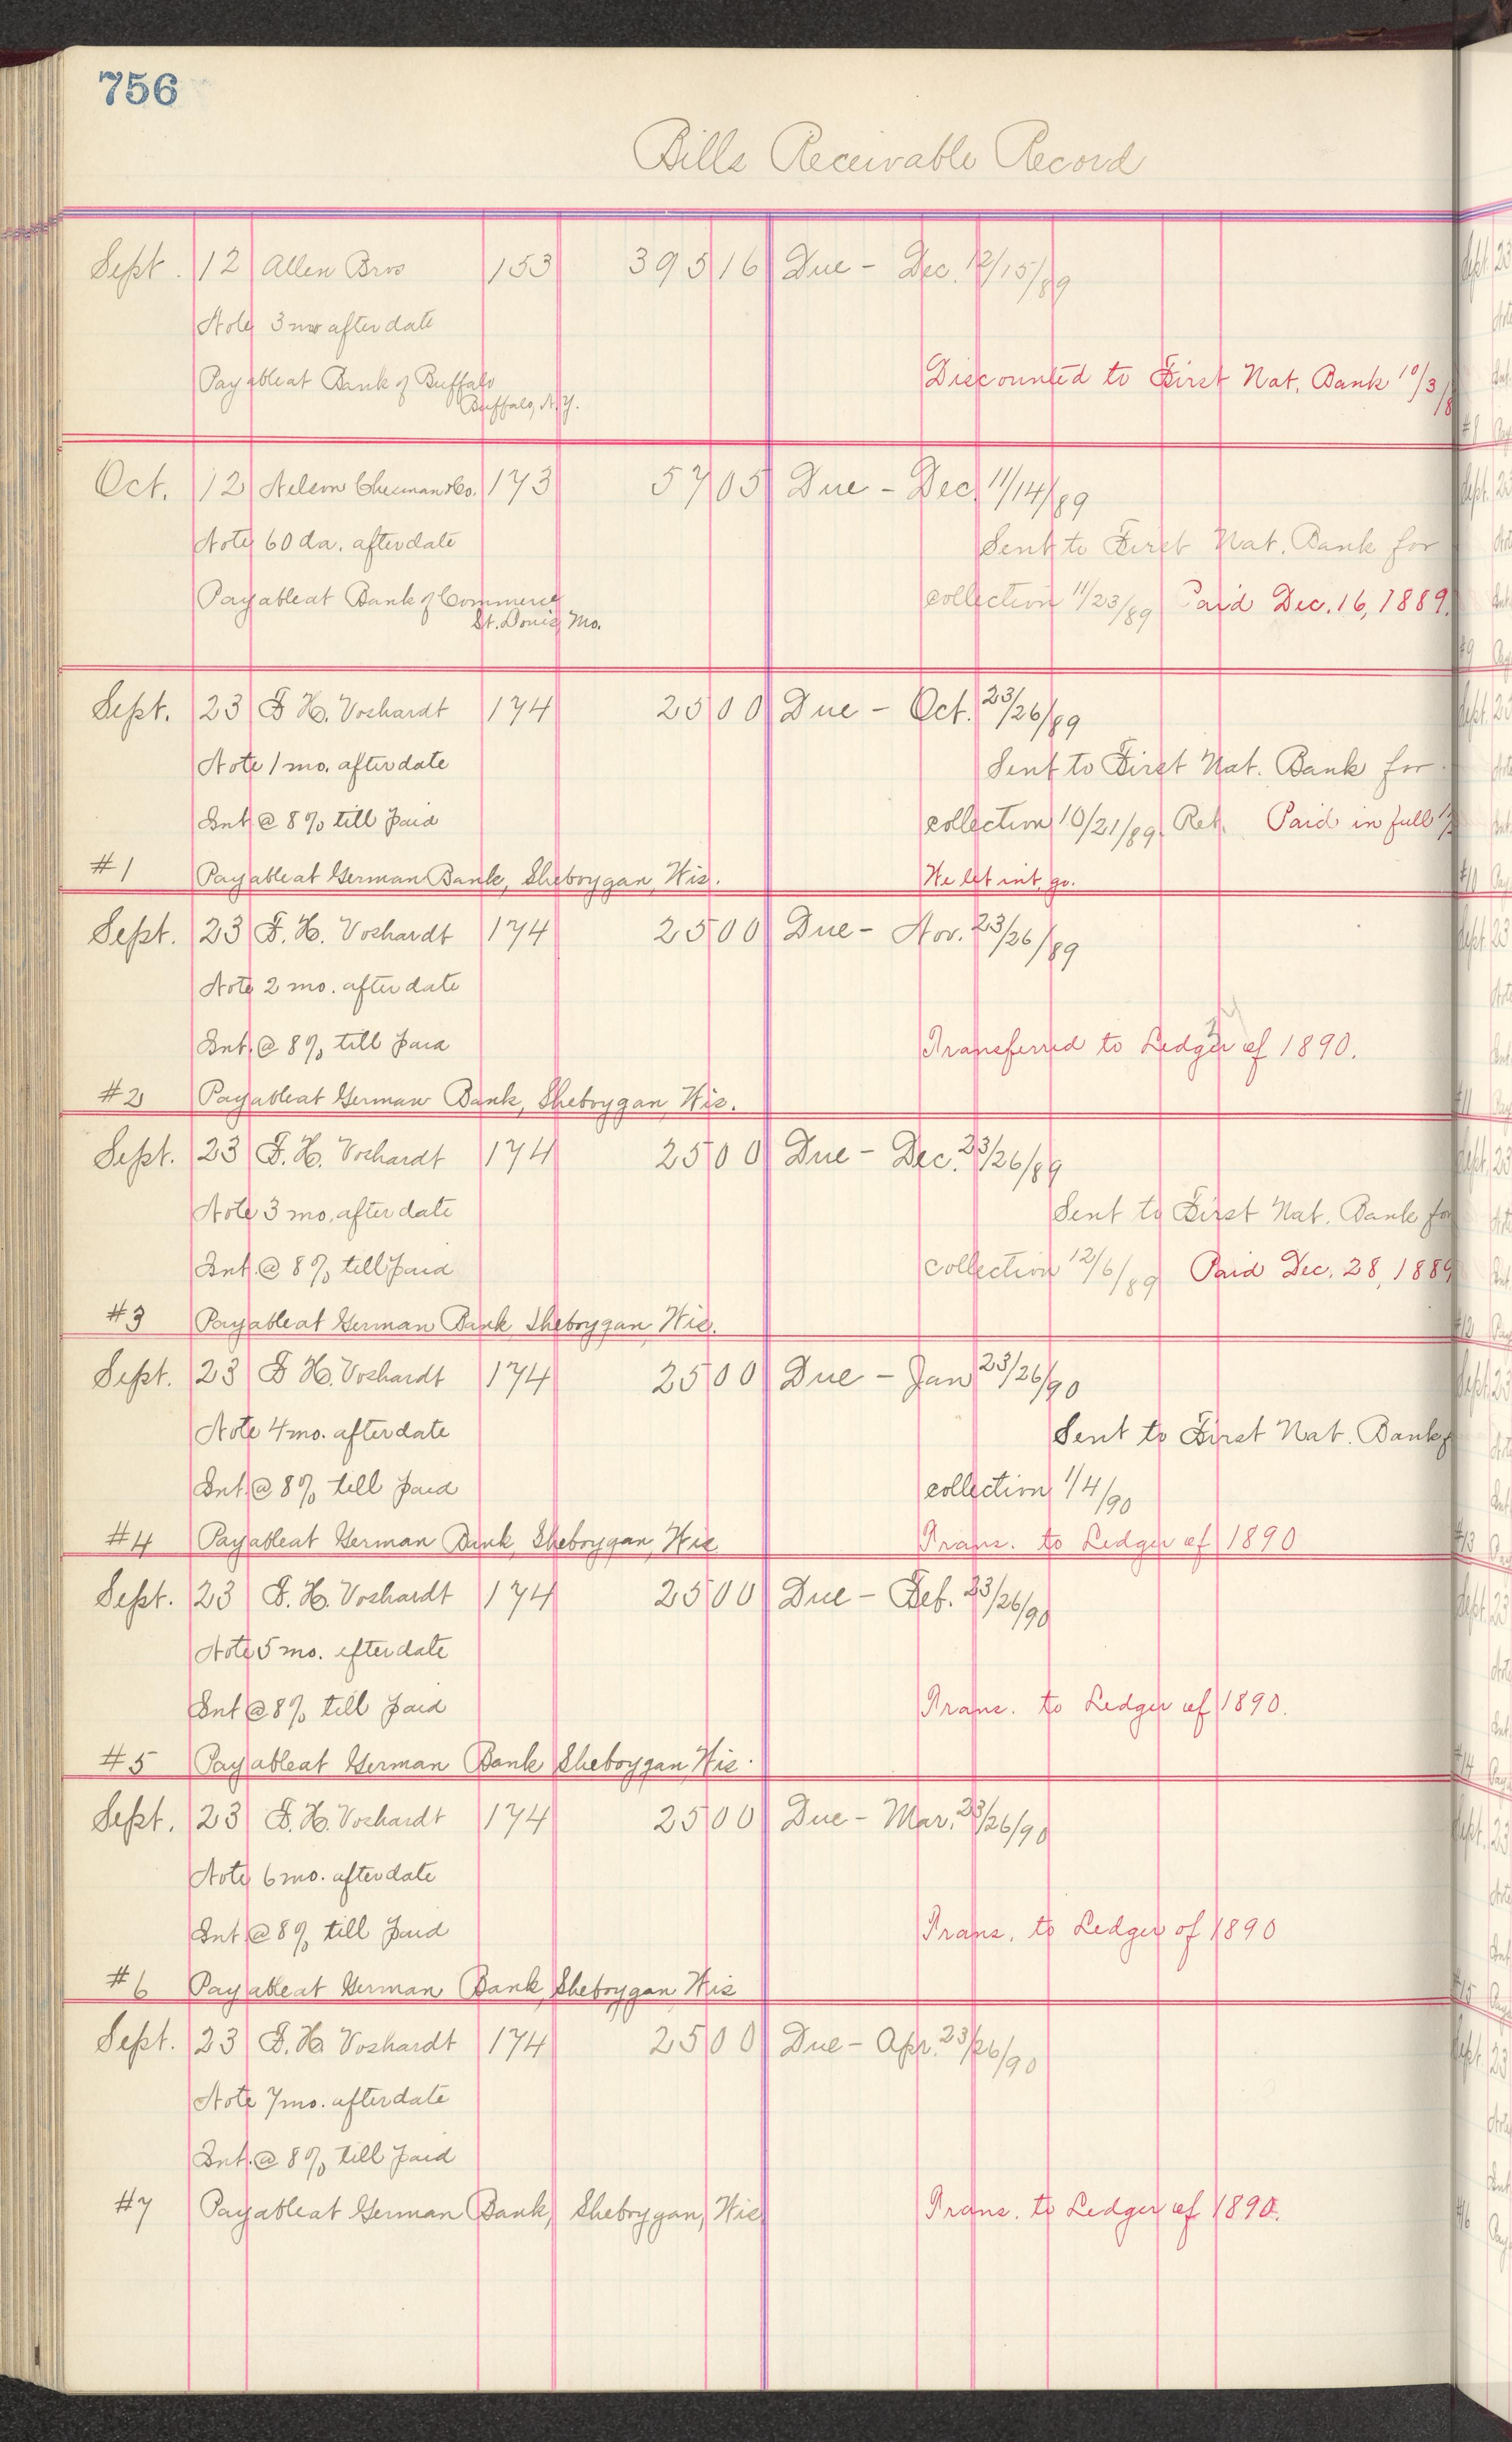 756
Bills Receivable Record
Sept. 12 Allen Bros 153 395 16 Due - Dec. 12/15/89
Note 3 mo after date
Payable at Bank of Buffalo Discounted to First Nat. Bank 10/3/8
Buffalo, N.Y.
Oct. 12 Nelson Chesman & Co. 173 57 05 Due - Dec 11/14/89
Note 60 da. after date Sent to First Nat. Bank for
Payable at Bank of Commerce collection 11/23/89 Paid Dec. 16, 1889.
St. Louis Mo.
Sept. 23 F H. Voshardt 174 25 00 Due - Oct. 23/26/89
Note 1 mo. after date Sent to First Nat. Bank for
Int @ 8% till paid collection 10/21/89. Ret. Paid in full
#1 Payable at German Bank, Sheboygan, Wis. We let int. go.
Sept. 23 F. H. Voshardt 174 25 00 Due - Nov. 23/26/89
Note 2 mo. after date
Int. @ 8% till paid Transferred to Ledger of 1890.
#2 Payable at German Bank, Sheboygan, Wis.
Sept. 23 F. H. Voshardt 174 25 00 Due - Dec. 23/26/89
Note 3 mo. after date Sent to First Nat. Bank for
Int. @ 8% till paid collection 12/6/89 Paid Dec. 28, 1889
#3 Payable at German Bank Sheboygan Wis.
Sept. 23 F H. Voshardt 174 25 00 Due - Jan 23/26/90
Note 4 mo. after date Sent to First Nat. Bank
Int. @ 8% till paid collection 1/4/90
#4 Payable at German Bank, Sheboygan, Wis Trans. to Ledger of 1890
Sept. 23 F. H. Voshardt 174 25 00 Due - Feb. 23/26/90
Note 5 mo. after date
Int @ 8% till paid Trans. to Ledger of 1890.
#5 Payable at German Bank Sheboygan, Wis.
Sept. 23 F. H. Voshardt 174 25 00 Due - Mar. 23/26/90
Note 6 mo. after date
Int @ 8% till paid Trans. to Ledger of 1890
#6 Payable at German Bank, Sheboygan Wis
Sept. 23 F. H. Voshardt 174 25 00 Due - Apr. 23/26/90
Note 7 mo. after date
Int. @ 8% till paid
#7 Payable at German Bank, Sheboygan, Wis Trans. to Ledger of 1890.